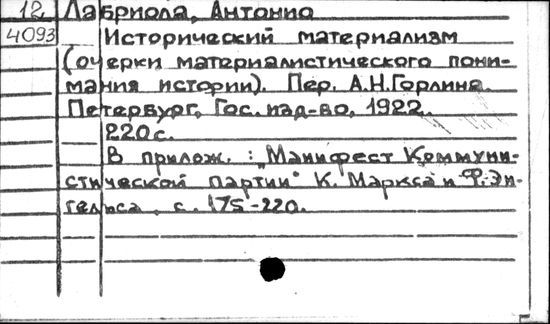 12 Лабриола, Антонио
4093 Исторический материализм
(очерки материалистического пони-
мания истории). Пер. А.Н.Горлина.
Петербург, Гос. изд-во, 1922.
220с.
В прилож. : „Манифест Коммуни-
стической партии" К. Маркса и Ф.Эн-
гельса, с. 175-220.